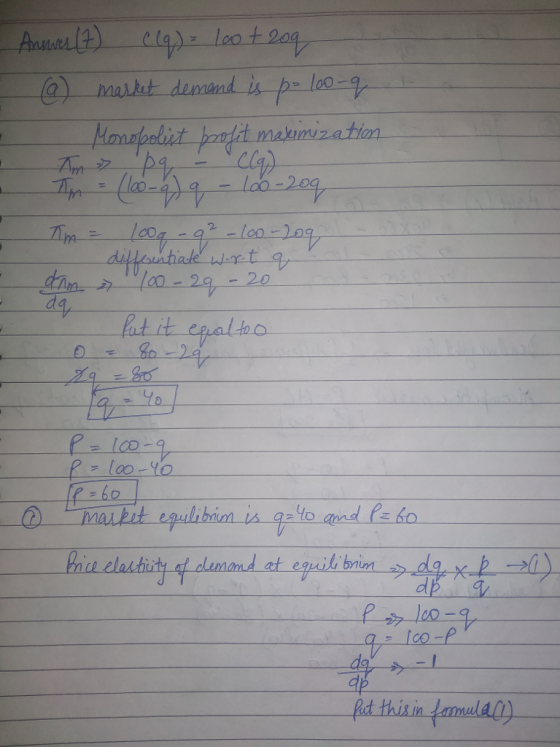 Answer(7) C(q) = 100 + 20q
(a) market demand is p = 100 - q
Monopolist profit maximization
πm => pq - C(q)
πm = (100-q)q - 100 - 20q
πm = 100q - q² - 100 - 20q
differentiate w.r.t q
dπm/dq => 100 - 2q - 20
Put it equal to 0
0 = 80 - 2q
2q = 80
q = 40
P = 100 - q
P = 100 - 40
P = 60
market equilibrim is q=40 and P=60
Price elasticity of demand at equilibrim => dq/dp × p/q → (1)
P => 100 - q
q = 100 - P
dq/dp => -1
Put this in formula (1)